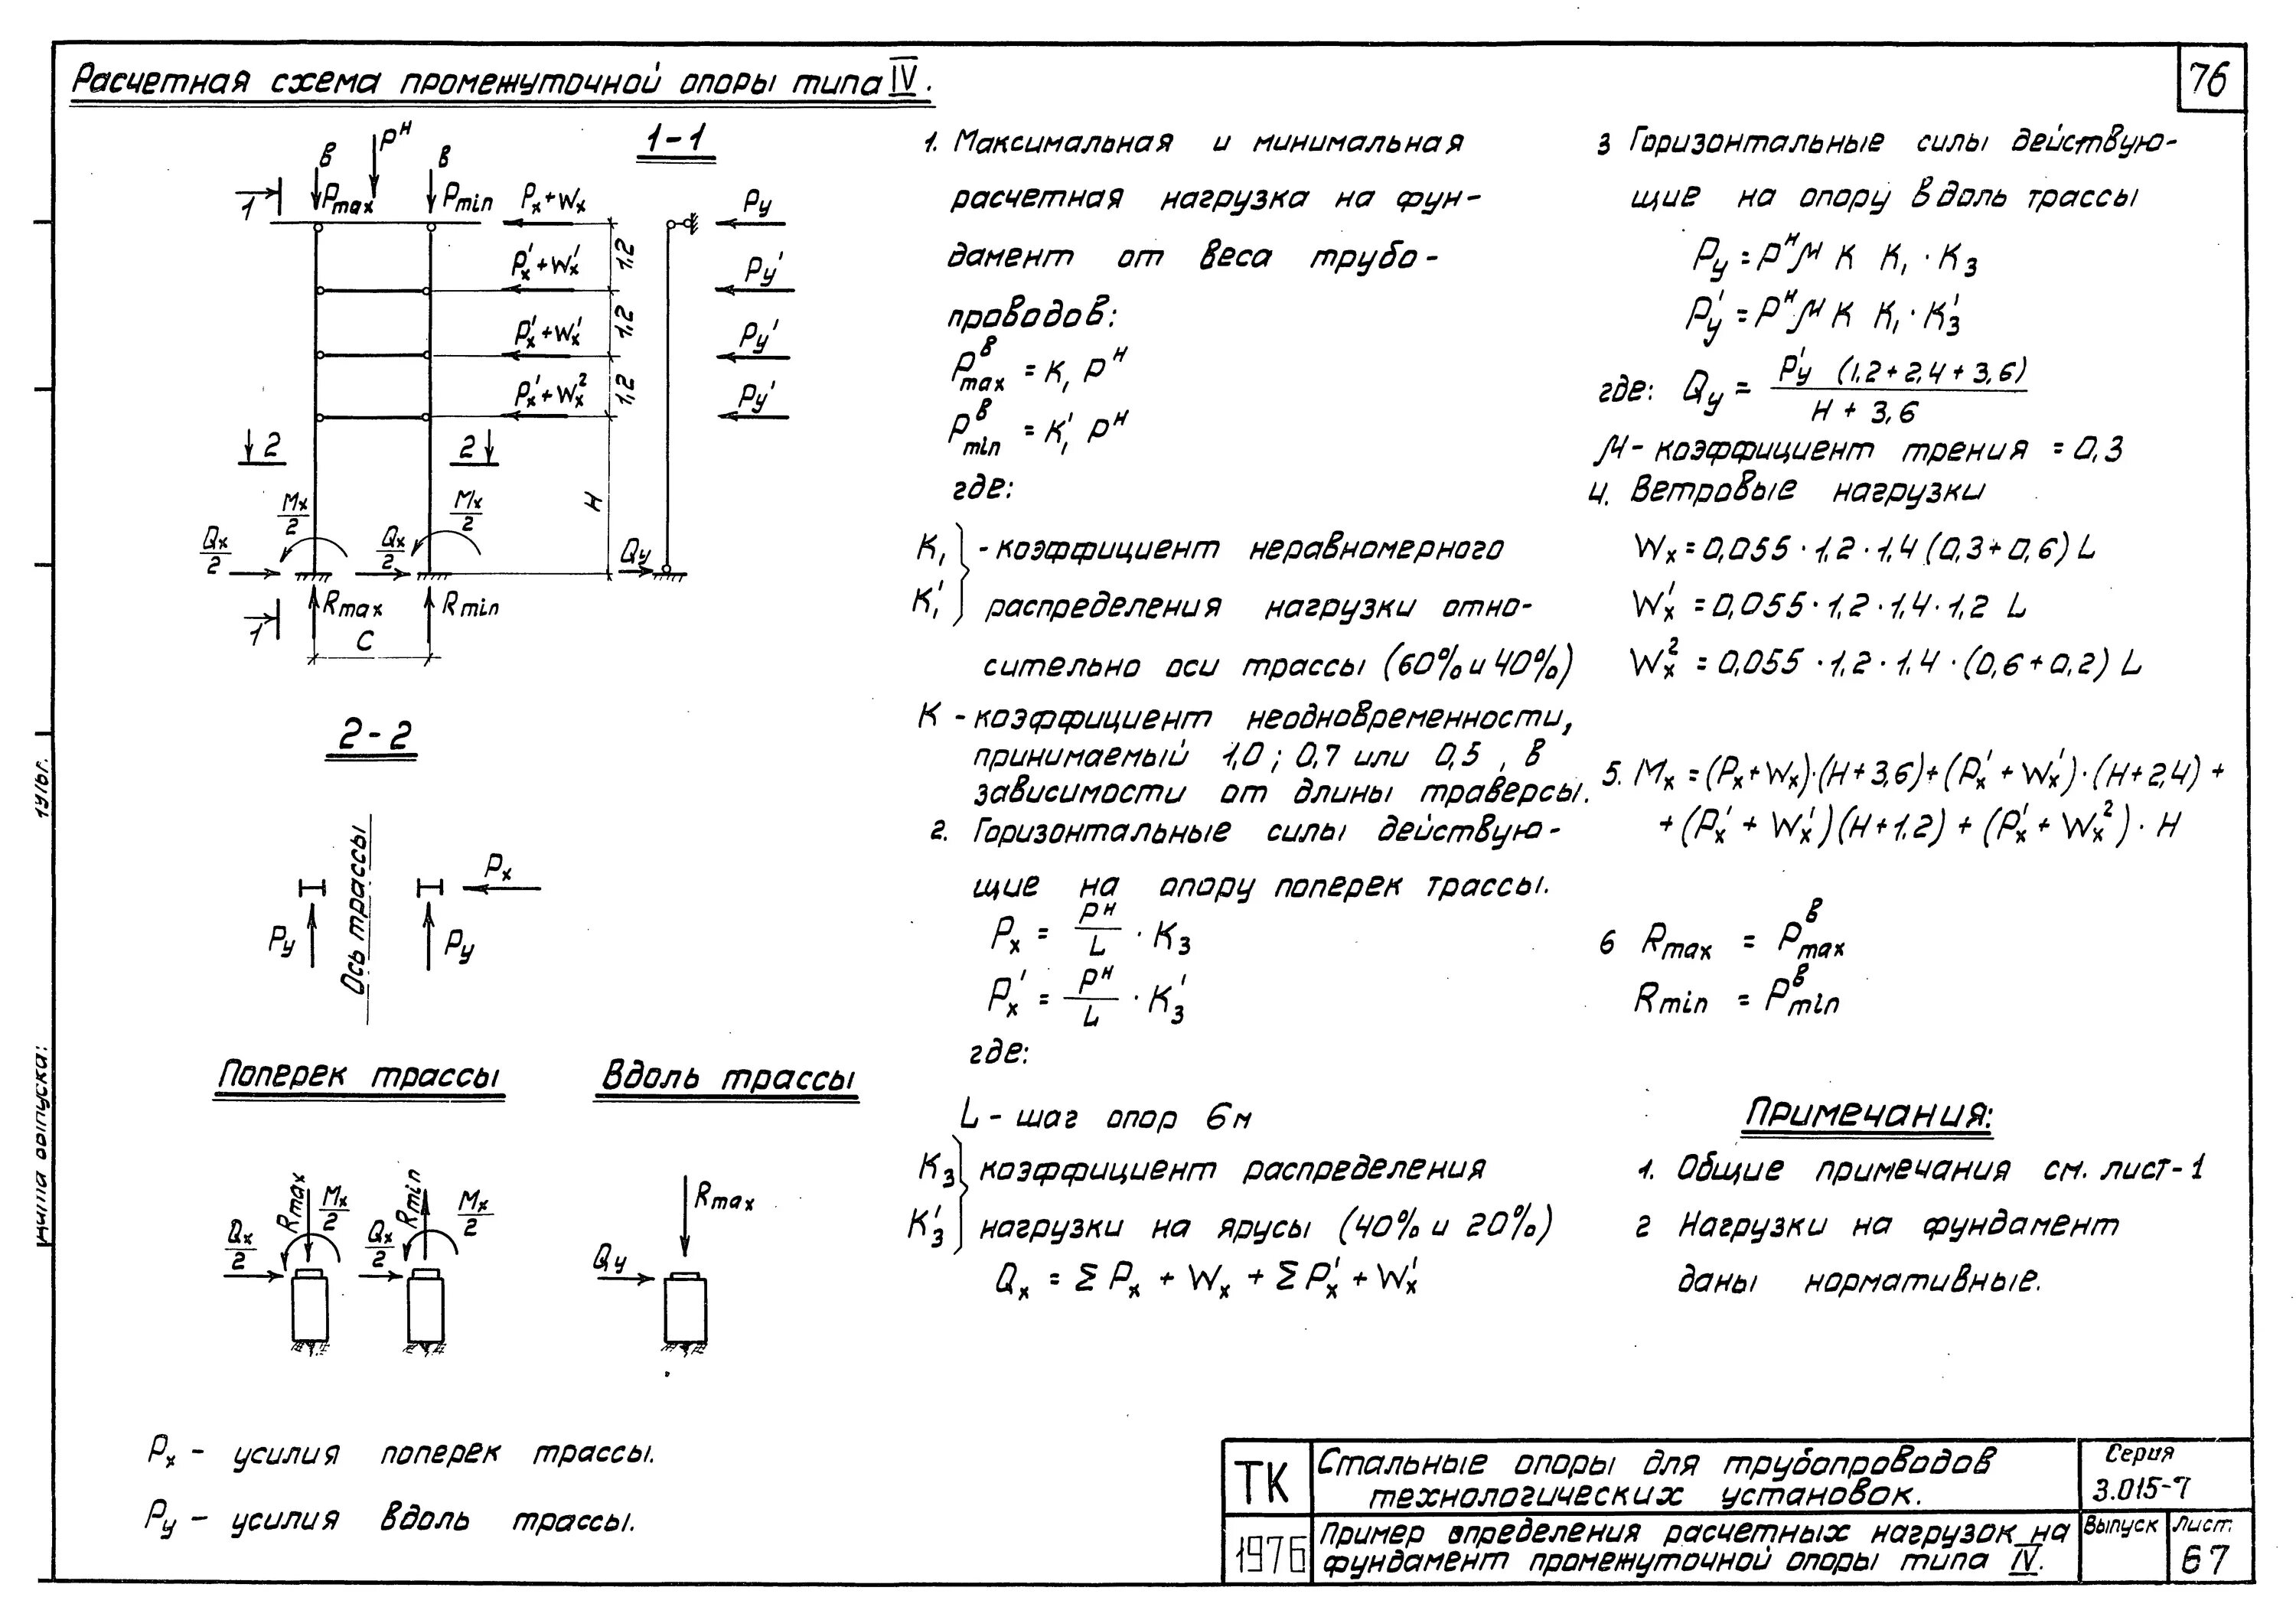 Расчетная схема промежуточной опоры типа IV.
76
1-1
Pᴴ
в
Pmax
в
Pmin
1
Px+Wx
Px'+Wx'
Px'+Wx'
Px'+Wx²
1,2
1,2
1,2
H
Py
Py'
Py'
Py'
2
2
Mx/2
Mx/2
Qx/2
Qx/2
Qy
Rmax
Rmin
1
C
2-2
Ось трассы
Px
Py
Py
Поперек трассы
Вдоль трассы
Qx/2
Rmax
Mx/2
Qx/2
Rmin
Mx/2
Qy
Rmax
Px - усилия поперек трассы.
Py - усилия вдоль трассы.
1. Максимальная и минимальная
расчетная нагрузка на фун-
дамент от веса трубо-
проводов:
Pᴮmax = K₁ Pᴴ
Pᴮmin = K₁' Pᴴ
где:
K₁
K₁'
-коэффициент неравномерного
распределения нагрузки отно-
сительно оси трассы (60% и 40%)
K - коэффициент неодновременности,
принимаемый 1,0; 0,7 или 0,5, в
зависимости от длины траверсы.
2. Горизонтальные силы действую-
щие на опору поперек трассы.
Px = Pᴴ/L · K₃
Px' = Pᴴ/L · K₃'
где:
L - шаг опор 6м
K₃
K₃'
коэффициент распределения
нагрузки на ярусы (40% и 20%)
Qx = Σ Px + Wx + Σ Px' + Wx'
3 Горизонтальные силы действую-
щие на опору вдоль трассы
Py = Pᴴ μ K K₁ · K₃
Py' = Pᴴ μ K K₁ · K₃'
где: Qy = Py' (1,2+2,4+3,6) / H + 3,6
μ - коэффициент трения = 0,3
4. Ветровые нагрузки
Wx = 0,055 · 1,2 · 1,4 (0,3+0,6) L
Wx' = 0,055 · 1,2 · 1,4 · 1,2 L
Wx² = 0,055 · 1,2 · 1,4 · (0,6+0,2) L
5. Mx = (Px+Wx)·(H+3,6)+(Px'+Wx')·(H+2,4)+
+(Px'+Wx')(H+1,2)+(Px'+Wx²)·H
6 Rmax = Pᴮmax
Rmin = Pᴮmin
Примечания:
1. Общие примечания см. лист-1
2 Нагрузки на фундамент
даны нормативные.
ТК
Стальные опоры для трубопроводов
технологических установок.
Серия
3.015-7
1976
Пример определения расчетных нагрузок на
фундамент промежуточной опоры типа IV.
Выпуск
Лист.
67